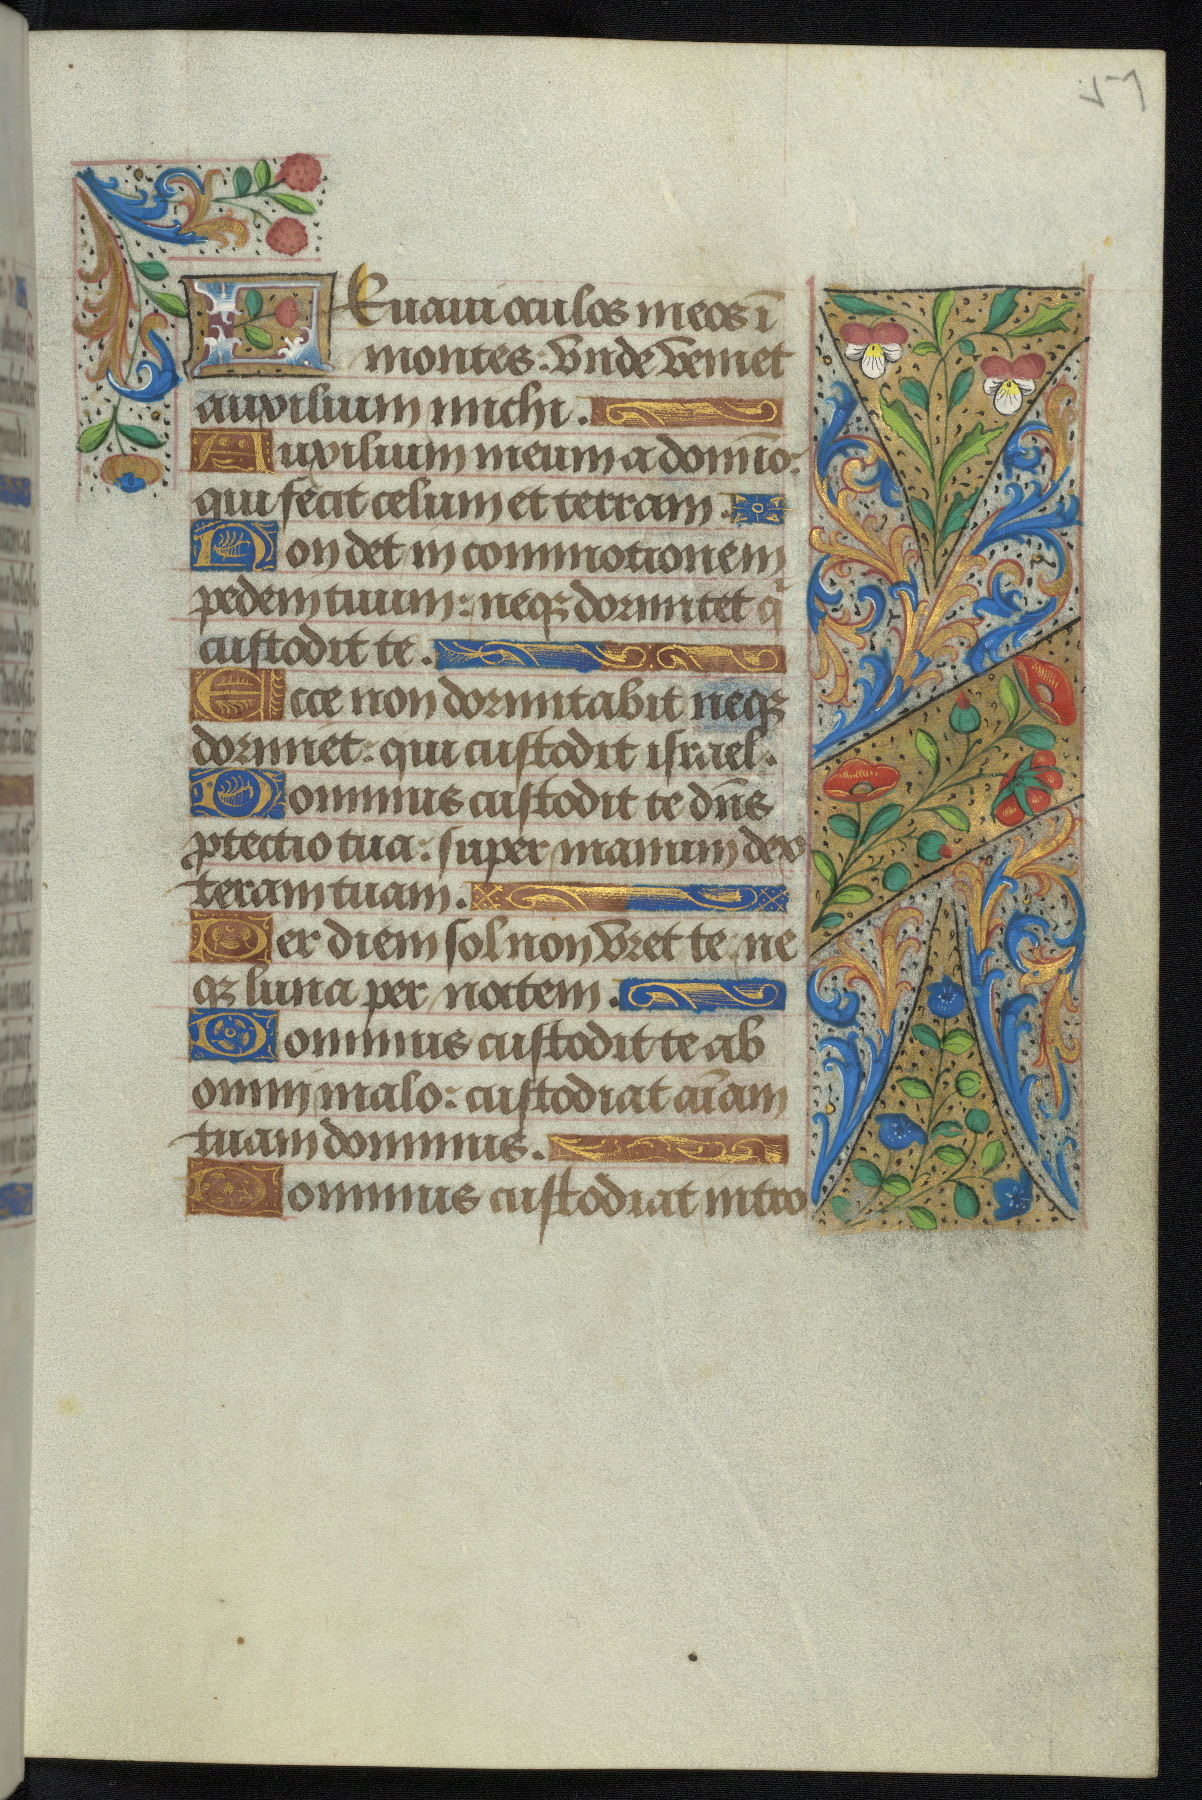 57
LEuaui oculos meos ī
montes: vnde veniet
auxilium michi.
Auxilium meum a domīo:
qui fecit celum et terram.
Non det in commotionem
pedem tuum: neqꝫ dormitet q̄
custodit te.
Ecce non dormitabit neqꝫ
dormiet: qui custodit israel.
Dominus custodit te dn̄s
ꝓtectio tua: super manum dex
teram tuam.
Per diem sol non vret te: ne
qꝫ luna per noctem.
Dominus custodit te ab
omni malo: custodiat aīam
tuam dominus.
Dominus custodiat intro